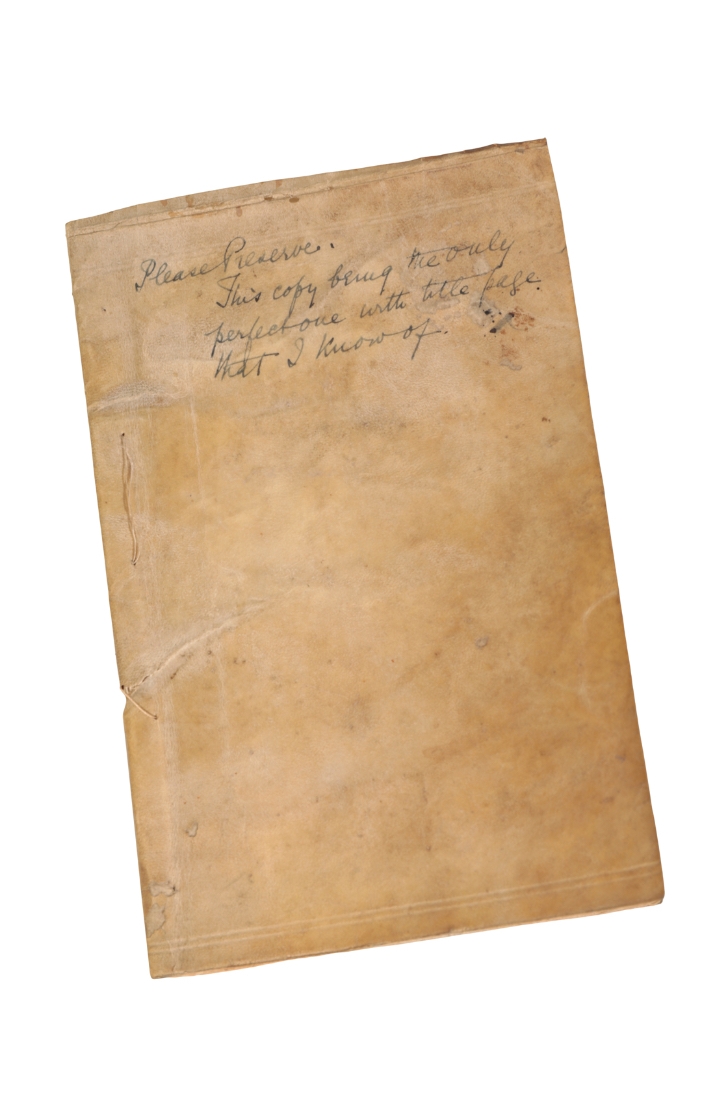 Please Preserve.
This copy being the only
perfect one with title page
that I know of.